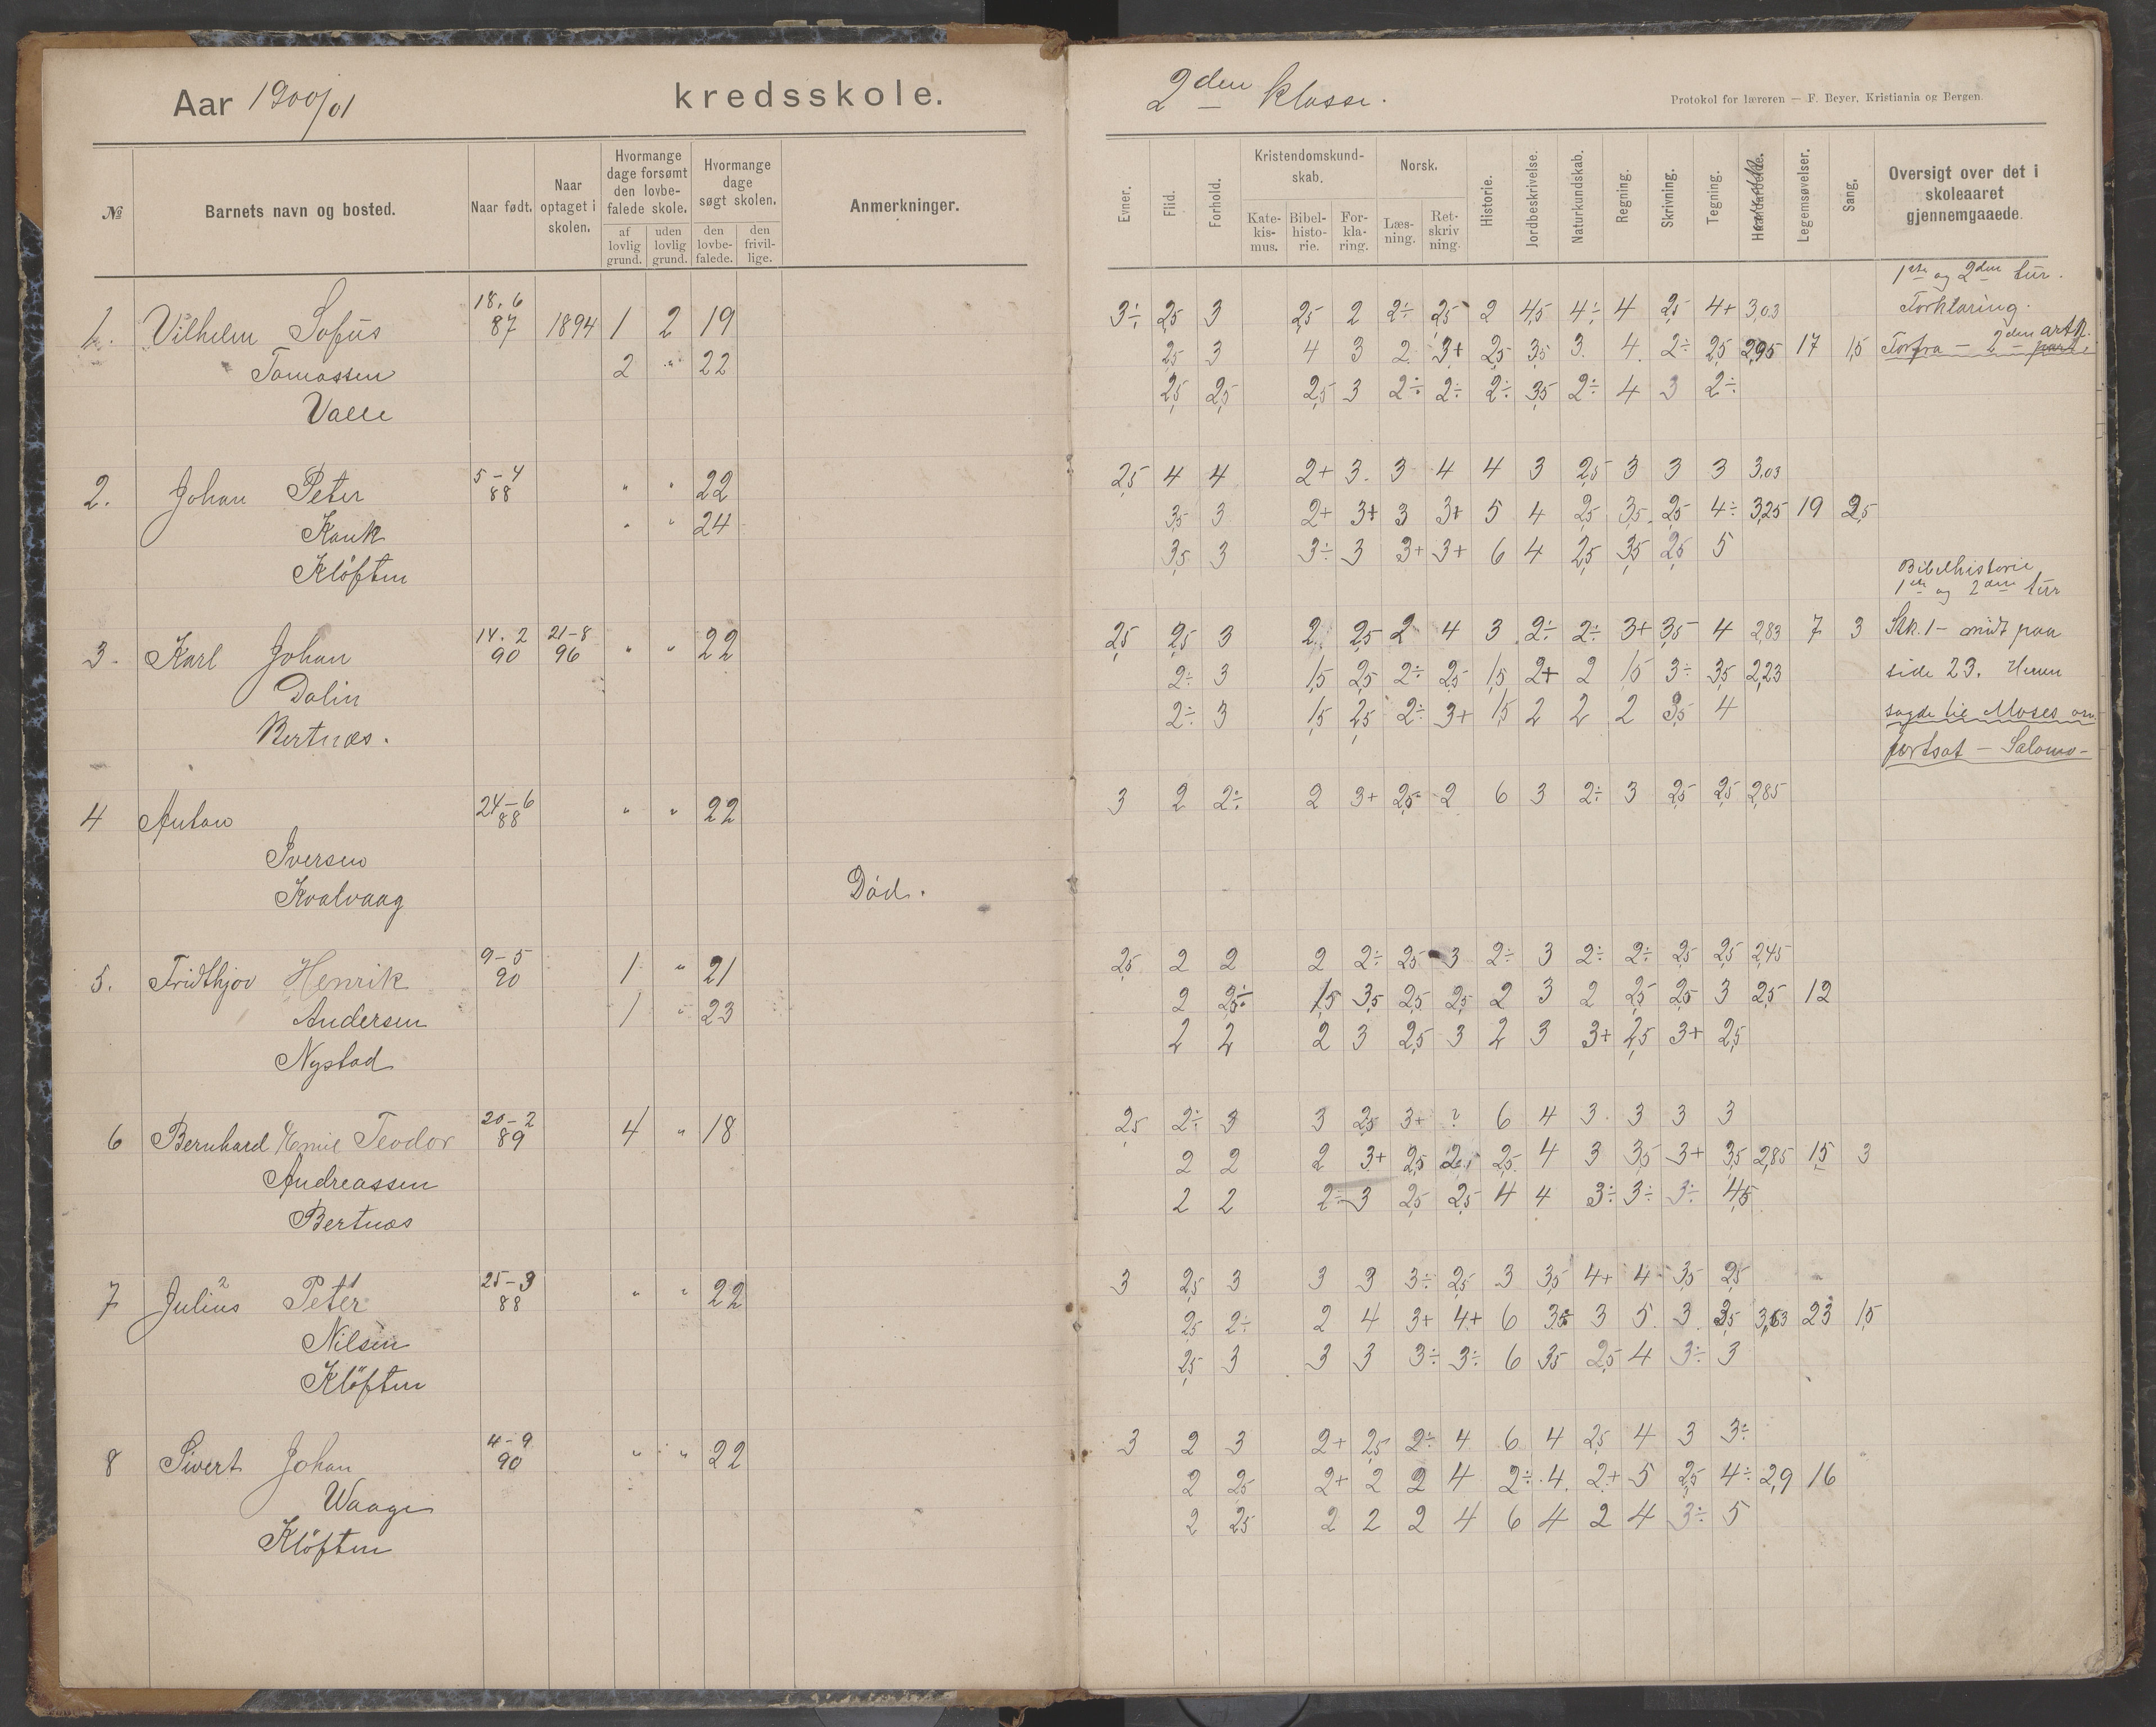 Aar 1900/01 kredsskole.
№ Barnets navn og bosted. Naar født. Naar optaget i skolen. Hvormange dage forsømt den lovbefalede skole. af lovlig grund. uden lovlig grund. Hvormange dage søgt skolen. den lovbefalede. den frivillige. Anmerkninger.
1. Vilhelm Sofus 18.6 87 1894 1 2 19
Tomassen 2 " 22
Valle
2. Johan Peter 5-4 88 " " 22
Kank " " 24
Kløften
3. Karl Johan 14.2 90 21-8 96 " " 22
Dalin
Bertnæs.
4 Anton 24-6 88 " " 22
Iversen
Kvalvaag Död.
5. Fridthjov Henrik 9-5 90 1 " 21
Andersen 1 " 23
Nystad
6 Bernhard Emil Teodor 20-2 89 4 " 18
Andreassen
Bertnæs
7 Julius 2 Peter 1 25-3 88 " " 22
Nilsen
Kløften
8 Sivert Johan 4-9 90 " " 22
Waage
Kløften
2den klasse.
Protokol for læreren — F. Beyer, Kristiania og Bergen.
Evner. Flid. Forhold. Kristendomskundskab. Katekismus. Bibelhistorie. Forklaring. Norsk. Læsning. Retskrivning. Historie. Jordbeskrivelse. Naturkundskab. Regning. Skrivning. Tegning. Haandarbeide. Legemsøvelser. Sang. Oversigt over det i skoleaaret gjennemgaaede.
1ste og 2den tur.
3÷ 2,5 3 2,5 2 2÷ 2,5 2 4,5 4÷ 4 2,5 4+ 3,03 Forklaring.
2,5 3 4 3 2 3+ 2,5 3,5 3. 4. 2÷ 2,5 2,95 17 1,5 Forfra — 2den artk.
2,5 2,5 2,5 3 2÷ 2÷ 2÷ 3,5 2÷ 4 3 2÷
2,5 4 4 2+ 3. 3 4 4 3 2,5 3 3 3 3,03
3,5 3 2+ 3+ 3 3+ 5 4 2,5 3,5 2,5 4÷ 3,25 19 2,5
3,5 3 3÷ 3 3+ 3+ 6 4 2,5 3,5 2,5 5
Bibelhistorie
1ste og 2den tur
2,5 2,5 3 2 2,5 2 4 3 2÷ 2÷ 3+ 3,5 4 2,83 7 3 Stk. 1 — midt paa
2÷ 3 1,5 2,5 2÷ 2,5 1,5 2+ 2 1,5 3÷ 3,5 2,23 side 23. Herren
2÷ 3 1,5 2,5 2÷ 3+ 1,5 2 2 2 3,5 4 sagde til Moses osv.
fortsat — Salomo —
3 2 2÷ 2 3+ 2,5 2 6 3 2÷ 3 2,5 2,5 2,85
2,5 2 2 2 2÷ 2,5 3 2÷ 3 2÷ 2÷ 2,5 2,5 2,45
2 2,5÷ 1,5 3,5 2,5 2,5 2 3 2 2,5 2,5 3 2,5 12
2 2 2 3 2,5 3 2 3 3+ 2,5 3+ 2,5
2,5 2÷ 3 3 2,5 3+ ? 6 4 3 3 3 3
2 2 2 3+ 2,5 2, 2,5 4 3 3,5 3+ 3,5 2,85 15 3
2 2 2÷ 3 2,5 2,5 4 4 3÷ 3÷ 3÷ 4,5
3 2,5 3 3 3 3÷ 2,5 3 3,5 4+ 4 3,5 2,5
2,5 2÷ 2 4 3+ 4+ 6 3,5 3 5 3 3,5 23 1,5
2,5 3 3 3 3÷ 3÷ 6 3,5 2,5 4 3÷ 3
3 2 3 2+ 2,5 2÷ 4 6 4 2,5 4 3 3÷
2 2,5 2+ 2 2 4 2÷ 4. 2+ 5 2,5 4÷ 2,9 16
2 2,5 2 2 2 4 6 4 2 4 3÷ 5